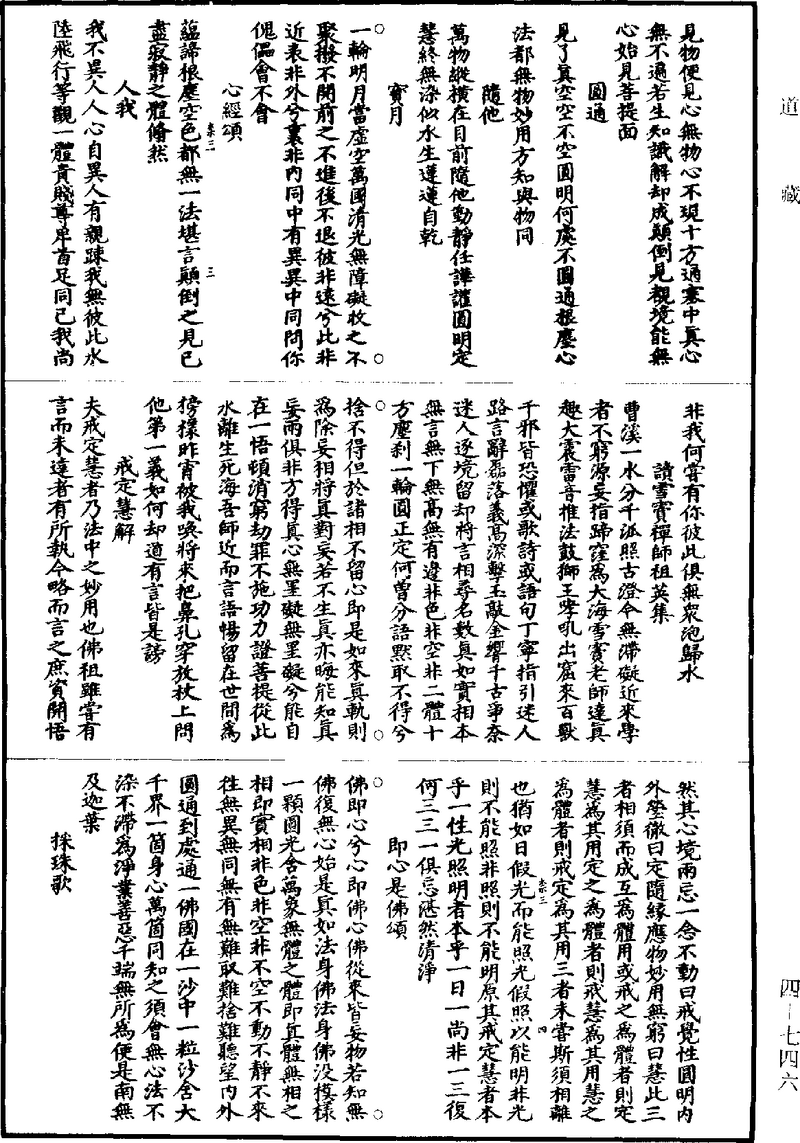 道藏
見物便見心無物心不現十方通塞中真心
無不遍若生知識解却成顛倒見覩境能無
心始見菩提面
圓通
見了真空空不空圓明何處不圓通根塵心
法都無物妙用方知與物同
隨他
萬物縱橫在目前隨他動靜任諠讙圓明定
慧終無染似水生蓮蓮自乾
寶月
一輪明月當虛空萬國清光無障礙收之不
聚撥不開前之不進後不退彼非遠兮此非
近表非外兮裏非內同中有異異中同問你
傀儡會不會
心經頌
三
蘊諦根塵空色都無一法堪言顛倒之見已
盡寂靜之體翛然
人我
我不異人人心自異人有親踈我無彼此水
陸飛行等觀一體貴賤尊卑首足同己我尚
非我何嘗有你彼此俱無衆泡歸水
讀雪竇禪師祖英集
曹溪一水分千派照古澄今無滯礙近來學
者不窮源妄指蹄窪爲大海雪竇老師達真
趣大震雷音推法鼓獅王哮吼出窟來百獸
千邪皆恐懼或歌詩或語句丁寧指引迷人
路言辭磊落義高深擊玉敲金響千古爭奈
迷人逐境留却將言相尋名數真如實相本
無言無下無高無有邊非色非空非二體十
方塵刹一輪圓正定何曾分語默取不得兮
捨不得但於諸相不留心即是如來真軌則
爲除妄相將真對妄若不生真亦晦能知真
妄兩俱非方得真心無罣礙無罣礙兮能自
在一悟頓消窮劫罪不施功力證菩提從此
永離生死海吾師近而言語暢留在世間爲
牓㨾昨宵被我喚將來把鼻孔穿放杖上問
他第一義如何却道有言皆是謗
戒定慧解
夫戒定慧者乃法中之妙用也佛祖雖嘗有
言而未達者有所執今略而言之庶資開悟
然其心境兩忘一念不動曰戒覺性圓明内
外瑩徹曰定隨緣應物妙用無窮曰慧此三
者相須而成互爲體用或戒之爲體者則定
慧爲其用定之爲體者則戒慧爲其用慧之
爲體者則戒定爲其用三者未嘗斯須相離
也猶如日假光而能照光假照以能明非光
則不能照非照則不能明原其戒定慧者本
乎一性光照明者本乎一日一尚非一三復
何三三一俱忘湛然清淨
四
即心是佛頌
佛即心兮心即佛心佛從來皆妄物若知無
佛復無心始是真如法身佛法身佛没模樣
一顆圓光含萬象無體之體即真體無相之
相即實相非色非空非不空不動不靜不來
往無異無同無有無難取難捨難聽望内外
圓通到處通一佛國在一沙中一粒沙含大
千界一箇身心萬箇同知之須會無心法不
染不滯爲淨業善惡千端無所爲便是南無
及迦葉
採珠歌
四—七四六